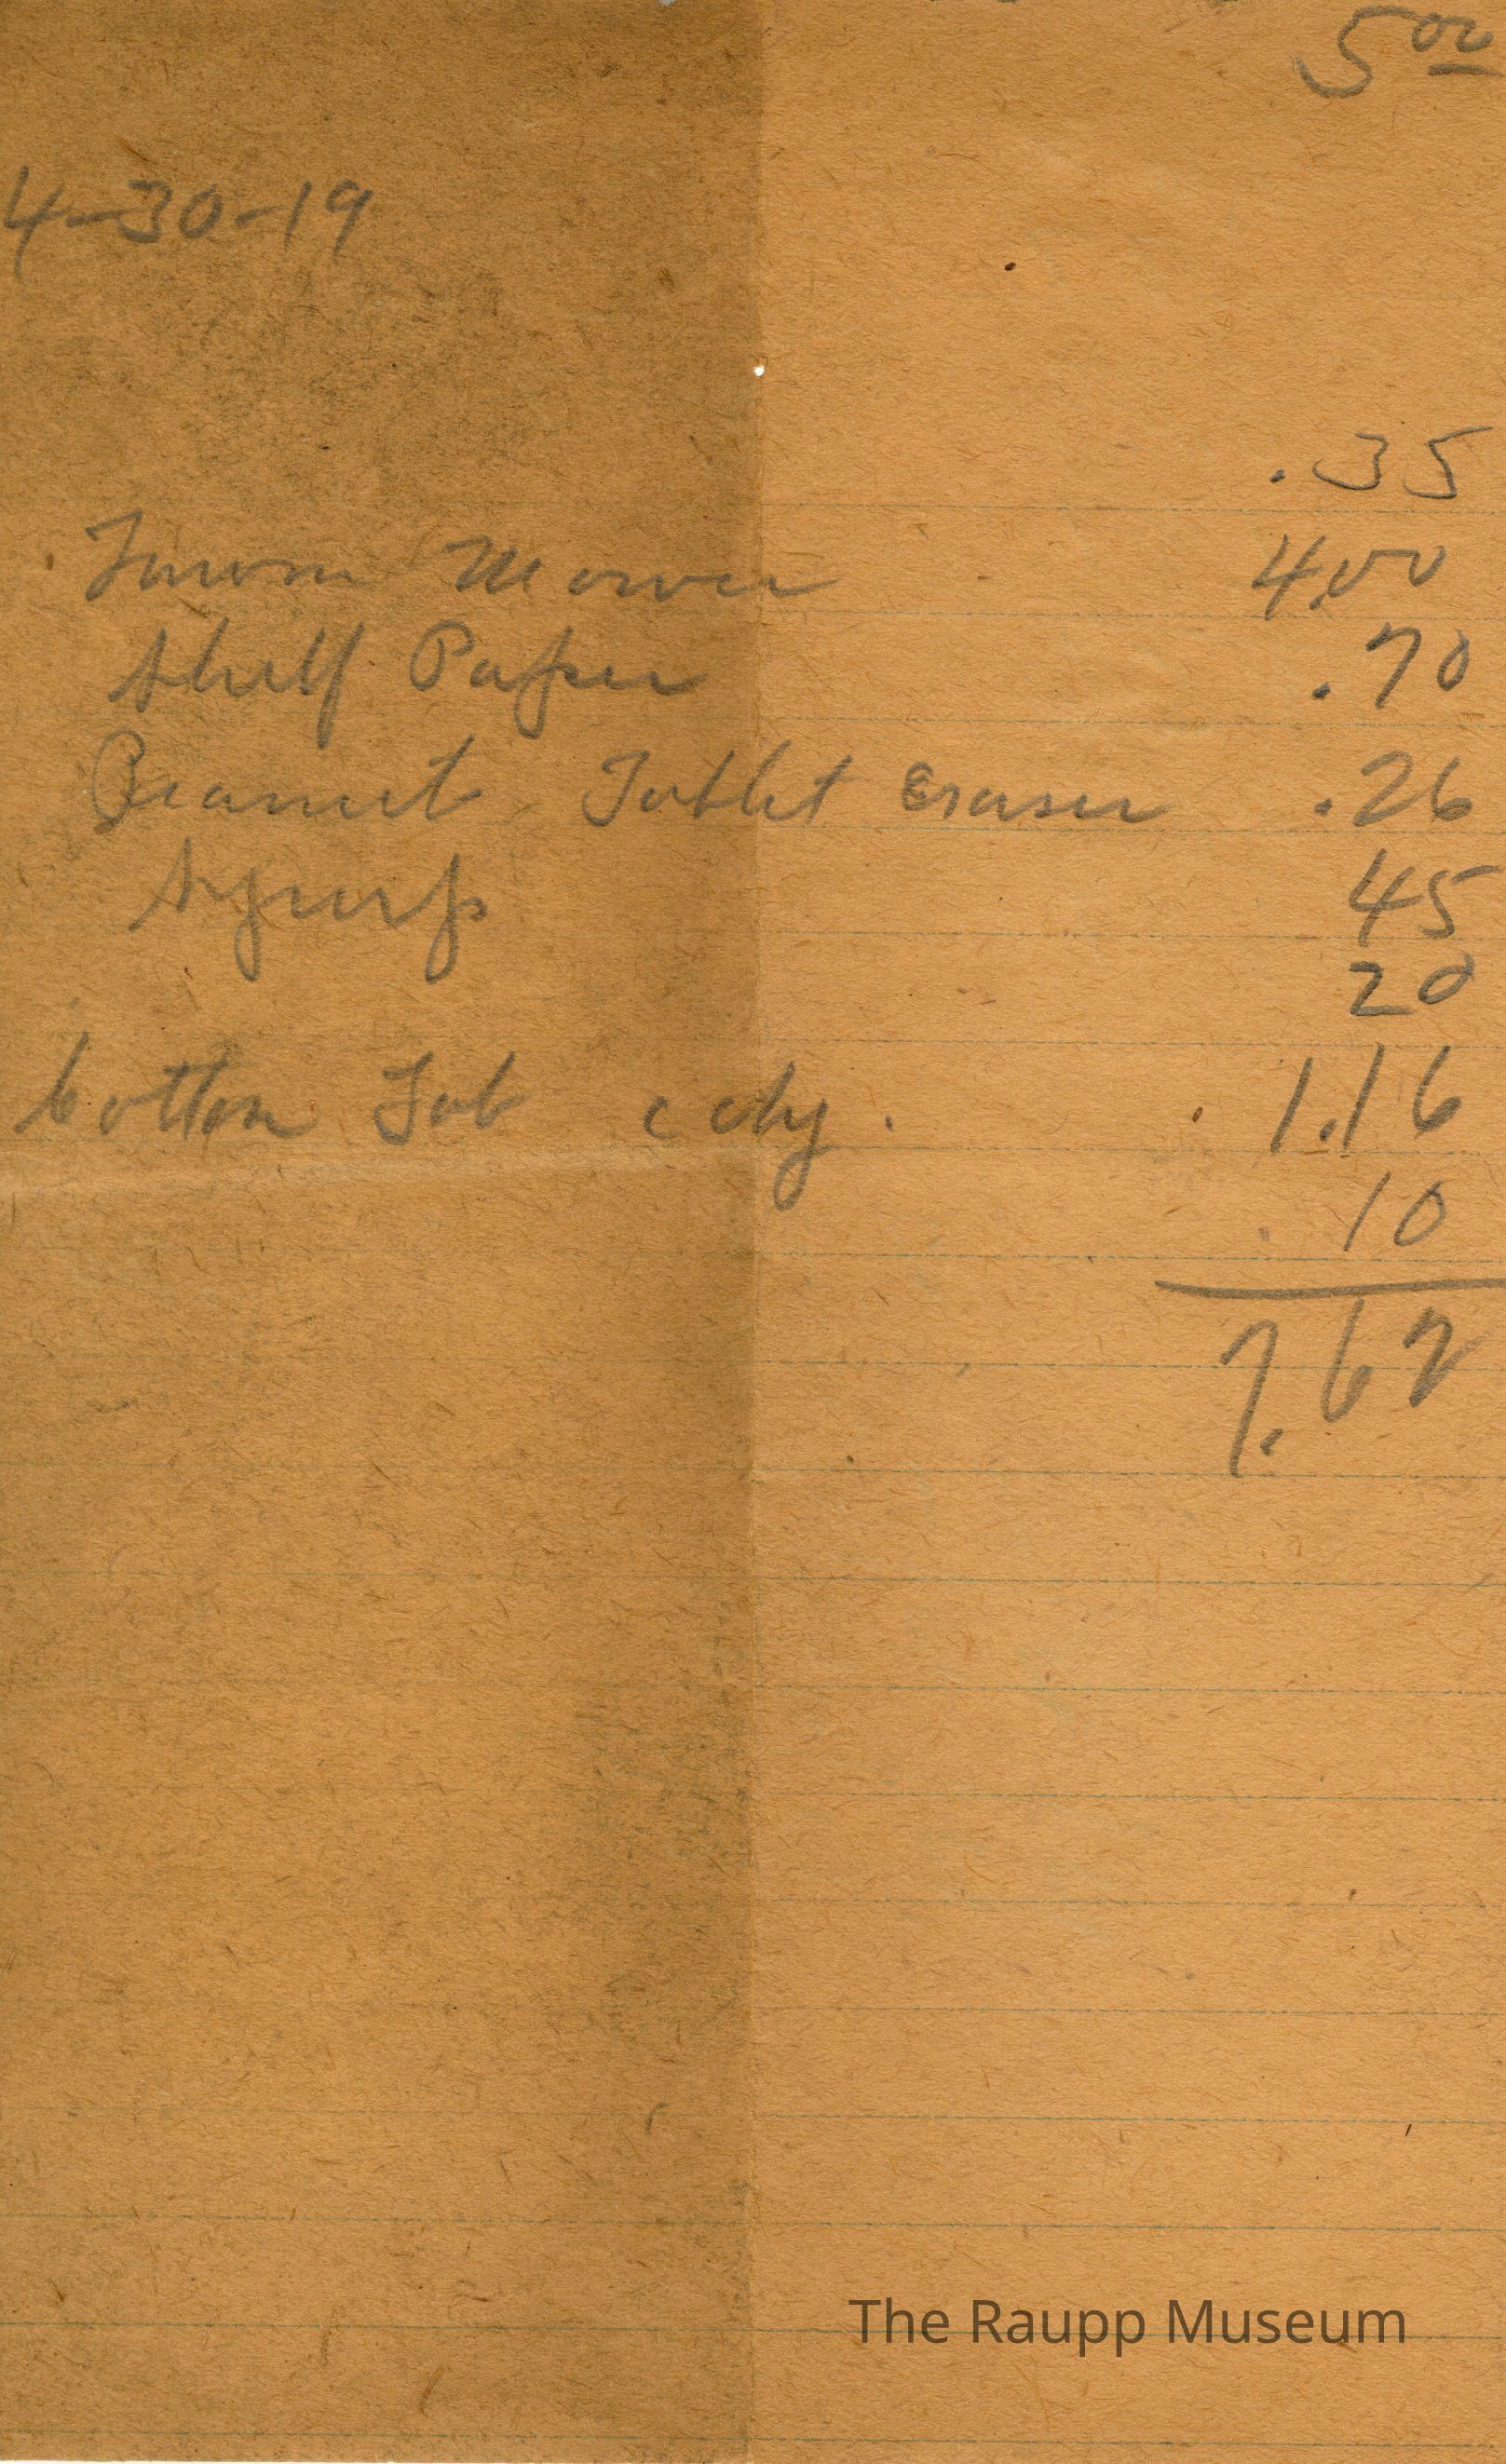 5 00
4-30-19
.35
Mower 4.00
Shelf Paper .70
Peanut Tablet Eraser .26
Syrup 45
20
Cotton Tob cdy. 1.16
.10
7.62
The Raupp Museum